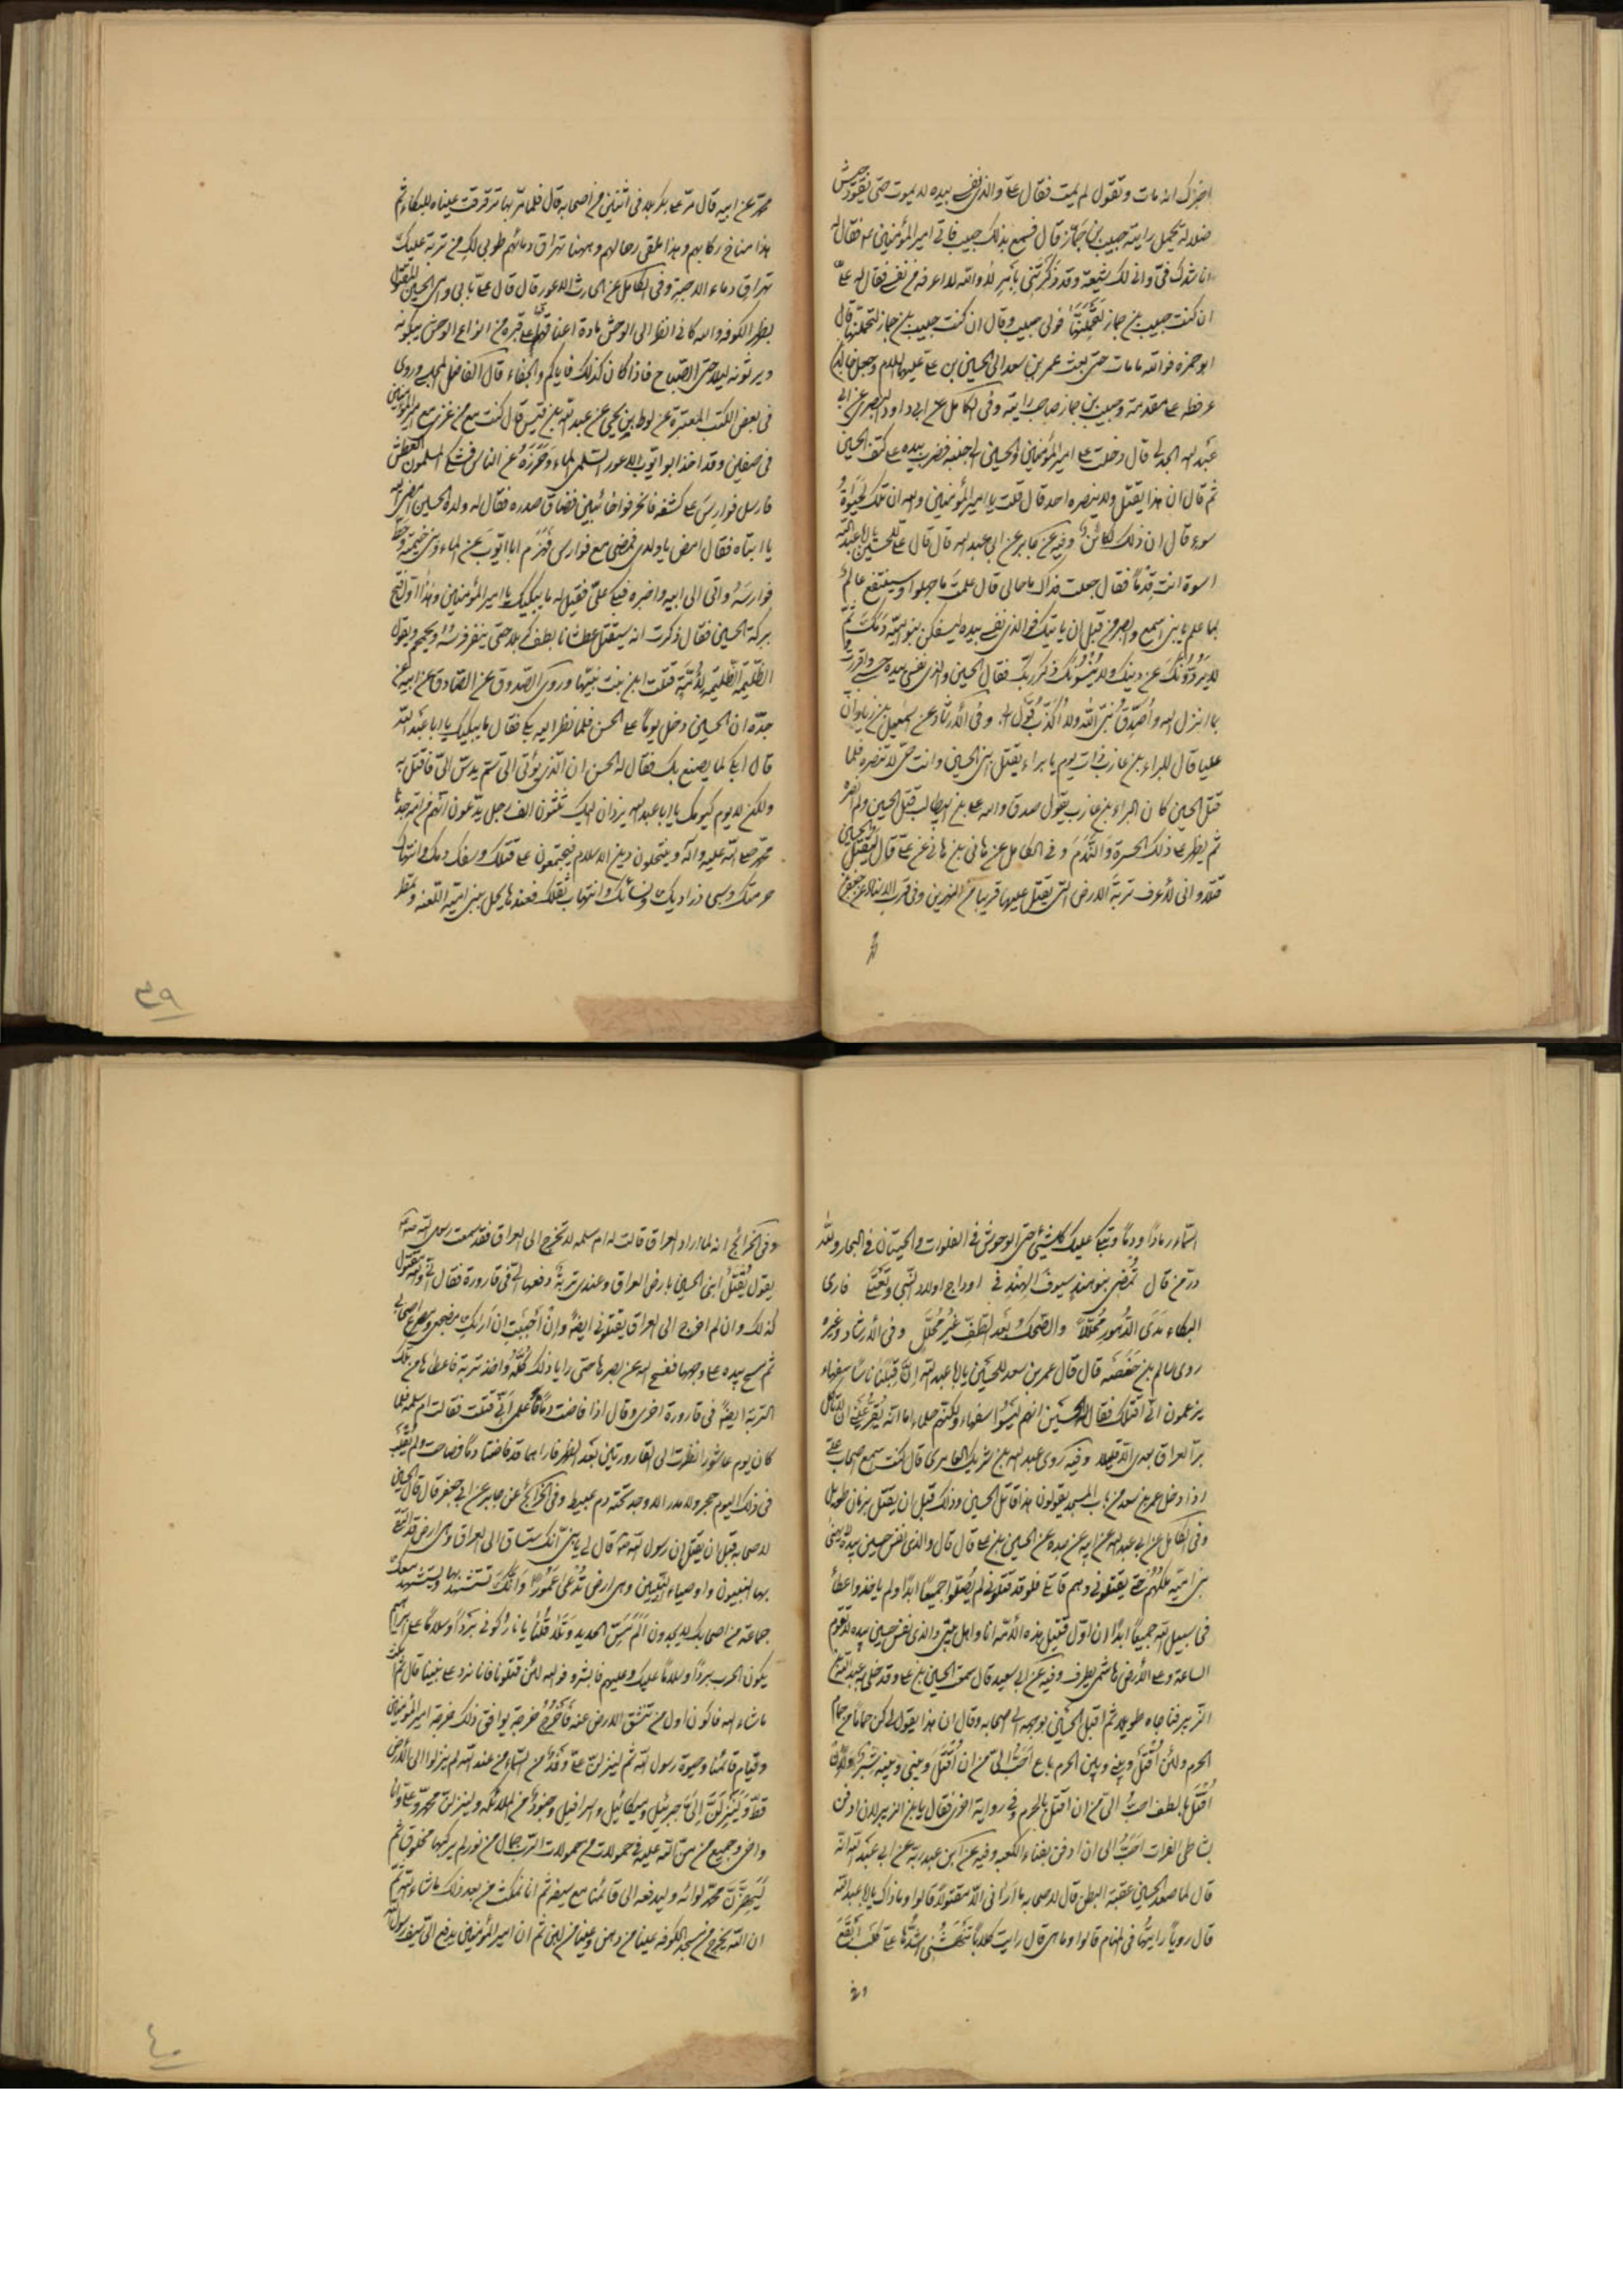 اخبرك انه مات وتقول لم يمت فقال علي والذي نفسي بيده لا يموت حتى يقود جيش
ضلالة يحمل رايته حبيب بن جماز قال فسمع بذلك حبيب فاتى امير المؤمنين ع فقال له
اناشدك فيّ واني لك شيعة وقد ذَكَرْتَني بأمر لا والله لا اعرفه من نفسي فقال له علي
ان كنت حبيب بن جماز لَتَحْمِلَنَّها فولى حبيب وقال ان كنت حبيب بن جماز لتحملنها قال
ابو حمزة فوالله ما مات حتى بعث عمر بن سعد الى الحسين بن علي عليهما السلام وجعل خالد بن
عرفطه على مقدمته وحبيب بن جماز صاحب رايته وفي الكامل عن ابي داود البصري عن ابي
عبد الله الجدلي قال دخلت على امير المؤمنين والحسين الى جنبه فضرب بيده على كتف الحسين
ثم قال ان هذا يقتل ولا ينصره احد قال قلت يا امير المؤمنين والله ان تلك لحيوة
سوء قال ان ذلك لكائن وفيه عن جابر عن ابي عبد الله قال قال علي للحسين يا ابا عبد الله
اسوة انت قِدْماً فقال جعلت فداك ما حالي قال علمتَ ما جهلوا وسينتفع عالم
بما علم يا بني اسمع وابصر من قبل ان ياتيك فوالذي نفسي بيده ليسفكن بنو امية دمك ثم
لا يردونك عن دينك ولا ينسونك ذكر ربك فقال الحسين والذي نفسي بيده حسبي واقررت
بما انزل الله واُصدّق نبيّ الله ولا اُكذّب قول ابي وفي الارشاد عن اسمعيل بن زياد ان
عليا قال للبراء بن عازب ذات يوم يا براء يقتل ابني الحسين وانت حيّ لا تنصره فلما
قتل الحسين كان البراء بن عازب يقول صدق والله علي بن ابيطالب قتل الحسين ولم انصره
ثم يظهر على ذلك الحسرة والندم وفي الكامل عن هاني بن هاني عن علي قال ليقتل الحسين
قتلا واني لأعرف تربة الارض التي يقتل عليها قريبا من النهرين وفي قرب الاسناد عن جعفر بن
محمد عن ابيه قال مرّ علي بكربلا في اثنين من اصحابه قال فلما مرّ بها ترقرقت عيناه للبكاء ثم
هذا مناخ ركابهم وهذا ملقى رحالهم وههنا تهراق دمائهم طوبى لك من تربة عليك
تهراق دماء الاحبة وفي الكامل عن الحارث الاعور قال قال علي بابي وامي الحسين المقتول
بظهر الكوفه والله كاني انظر الى الوحش مادة اعناقها على قبره من انواع الوحش يبكونه
ويرثونه ليلا حتى الصباح فاذا كان كذلك فاياكم والجفاء قال الفاضل المجلسي وروي
في بعض الكتب المعتبرة عن لوط بن يحيى عن عبد الله بن قيس قال كنت مع من غزى مع امير المؤمنين
في صفين وقد اخذ ابو ايوب الاعور السلمي الماء وَحَرَزَهُ عن الناس فشكى المسلمون العطش
فارسل فوارسَ على كشفه فانحرفوا خائبين فضاق صدره فقال له ولده الحسين امضي اليه
يا ابتاه فقال امض يا ولدي فمضى مع فوارس فهزم ابا ايوب عن الماء وبنى خيمته وحط
فوارسَهُ واتى الى ابيه واخبره فبكى عليّ فقيل له ما يبكيك يا امير المؤمنين وهذا اول فتح
ببركة الحسين فقال ذكرت انه سيقتل عطشانا بطف كربلا حتى ينفر فرسُهُ ويحمحم ويقول
الظليمة الظليمة لأمّة قتلت ابن بنت نبيّها وروى الصّدوق عن الصّادق عن ابيه عن
جدّه ان الحسين دخل يوماً على الحسن فلما نظر اليه بكى فقال ما يبكيك يا ابا عبد الله
قال ابكي لما يصنع بك فقال له الحسن ان الذي يؤتى اليّ سمّ يدسّ اليّ فاقتل به
ولكن لا يوم كيومك يا ابا عبد الله يزدلف اليك ثلثون الف رجل يدّعون انهم من امة جدنا
محمد صلى الله عليه وآله وينتحلون دين الاسلام فيجتمعون على قتلك وسفك دمك وانتهاك
حرمتك وسبي ذراريك ونسائك وانتهاب ثقلك فعندها يحل ببني امية اللعنة وتمطر
٣٩
السّماء رمادًا ودمًا ويبكي عليك كل شيئ حتى الوحوش في الفلوات والحيتان في البحار ولله
درّ من قال تُمضي بنو هندٍ سيوفَ الهِنْدِ في اوداج اولاد النبي وتعتدي فاري
البكاء مدى الدّهور محلّلاً والضحك بعد الطفّ غيرُ مُحلّل وفي الارشاد وغيره
روى سالم بن حَفْصَه قال قال عمر بن سعد للحسين يا ابا عبد الله اِنّ قِبَلَنَا ناسًا سفهاء
يزعمون انّي اقتلك فقال الحسين انهم ليسوا سفهاء ولكنهم حلماء اما انه يُقرّ عيني ان لا تاكل
برّ العراق بعدي الّا قليلا وفيه روى عبد الله بن شريك العامري قال كنت اسمع اصحاب علي
اذا دخل عمر بن سعد من باب المسجد يقولون هذا قاتل الحسين وذلك قبل ان يقتل بزمان طويل
وفي الكامل عن ابي عبد الله عن ابيه عن جده عن الحسين بن علي قال قال والذي نفس حسين بيده لا يهنئ
بني اميّة ملكهم حتى يقتلوني وهم قاتلي فلو قد قتلوني لم يُصلّوا جميعًا ابدًا ولم ياخذوا عطاءً
في سبيل الله جميعًا ابدًا ان اوّل قتيل هذه الأمّة انا واهل بيتي والذي نفس حسين بيده لا تقوم
الساعة وعلى الأرض هاشمي يطرف وفيه عن ابي سعيد قال سمعت الحسين بن علي وقد خلى به عبد الله بن
الزبير فناجاه طويلا ثم اقبل الحسين بوجهه اليهم وقال ان هذا يقول لي كن حمامًا من حمام
الحرم ولئن اُقتَل وبيني وبين الحرم باع اَحَبُّ اليّ من ان اُقتل وبيني وبينه شبر ولأن
اُقتَل بالطف احبّ اليّ من ان اُقتل بالحرم وفي رواية اخرى فقال يا بن الزبير لان ادفن
بشاطئ الفرات احبُّ اليّ ان ادفن بفناء الكعبه وفيه عن ابن عبد ربه عن ابي عبد الله انه
قال لما صعد الحسين عقبة البطن قال لاصحابه ما اراني الّا مقتولاً قالوا وما ذاك يا ابا عبد الله
قال رويا رايتها في المنام قالوا وما هي قال رايت كلابًا تَنْهَشُني اشدُّها علي كلب ابقع
وفي
وفي الخرائج انه لما اراد العراق قالت له ام سلمه لا تخرج الى العراق فقد سمعت رسول الله ص
يقول يُقْتَلُ ابني الحسين بارض العراق وعندي تربةٌ دفعها اليّ في قارورة فقال اني والله مقتول
كذلك وان لم اخرج الى العراق يقتلوني ايضًا وان احببت ان اريك مضجعي ومصرع اصحابي
ثم مسح بيده على وجهها ففسح الله عن بصرها حتى رايا ذلك كلّه واخذ تربة فاعطاها من تلك
التربة ايضًا في قارورة اخرى وقال اذا فاضت دمًا فاعلمي انّي قتلت فقالت ام سلمه فلما
كان يوم عاشورا نظرت الى القارورتين بعد الظهر فاراهما قد فاضتا دمًا فصاحت ولم يقلب
في ذلك اليوم حجر ولا مدر الا وجد تحته دم عبيط وفي الخرائج عن جابر عن ابي جعفر قال قال الحسين
لاصحابه قبل ان يقتل ان رسول الله ص قال لي يا بنيّ انّك ستساق الى العراق وهي ارض قد التقى
بها النبيون واوصياء النبيين وهي ارض تُدْعَى عَمُورَا وَاِنّكَ تستشهد بها ويستشهد معك
جماعة من اصحابك لا يجدون اَلَمَ مَسّ الحديد وَتَلَا قُلْنَا يا نار كوني بَرْدًا وسلامًا على ابراهيم
يكون الحرب بردًا وسلامًا عليك وعليهم فابشروا فوالله لئن قتلونا فانا نرد على نبينا قال ثم امكث
ما شاء الله فاكون اول من تنشق الارض عنه فَاَخْرُجُ خرجة يوافق ذلك خرجة امير المؤمنين
وقيام قائمنا وحيوة رسول الله ثم لينزلن علي وفد من السّماء من عند الله لم ينزلوا الى الأرض
قطّ وَلَيَنْزِلَنَّ اِلَيَّ جبرئيل وميكائيل واسرافيل وجنود من الملائكة ولينزلن محمد وعلي وانا
واخي وجميع من منّ الله عليه في حمولات من حمولات الرّب جمال من نور لم يركبها مخلوق ثم
لَيَهُزّنّ محمد لوائه وليدفعه الى قائمنا مع سيفه ثم انا نمكث من بعد ذلك ما شاء الله ثم
ان الله يخرج من مسجد الكوفه عينا من دهن وعينا من لبن ثم ان امير المؤمنين يدفع اليّ سيف رسول الله
٤٠